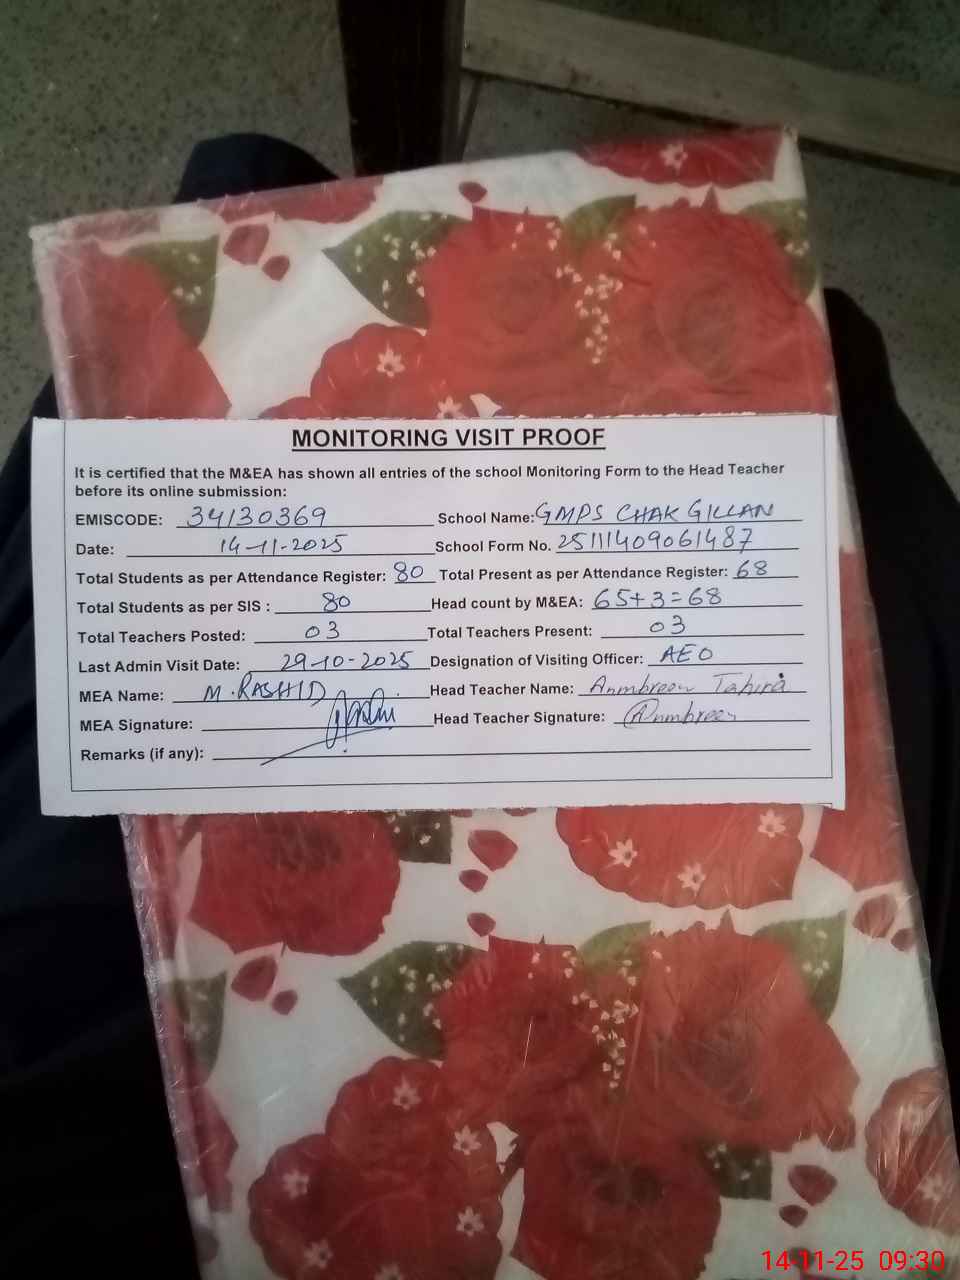 MONITORING VISIT PROOF
It is certified that the M&EA has shown all entries of the school Monitoring Form to the Head Teacher
before its online submission:
EMISCODE: 34130369 School Name: GMPS CHAK GILLAN
Date: 14-11-2025 School Form No. 25111409061487
Total Students as per Attendance Register: 80 Total Present as per Attendance Register: 68
Total Students as per SIS : 80 Head count by M&EA: 65+3=68
Total Teachers Posted: 03 Total Teachers Present: 03
Last Admin Visit Date: 29-10-2025 Designation of Visiting Officer: AEO
MEA Name: M.RASHID Head Teacher Name: Anmbreen Tahira
MEA Signature: Head Teacher Signature: Anmbreen
Remarks (if any):
14-11-25 09:30